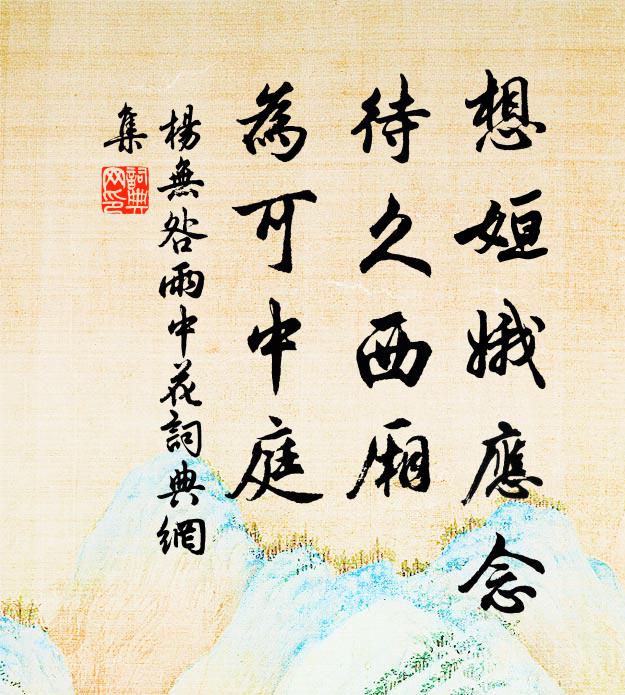 想姮娥應念
待久西厢
為可中庭
楊無咎雨中花詞典網
集
詞典
网印